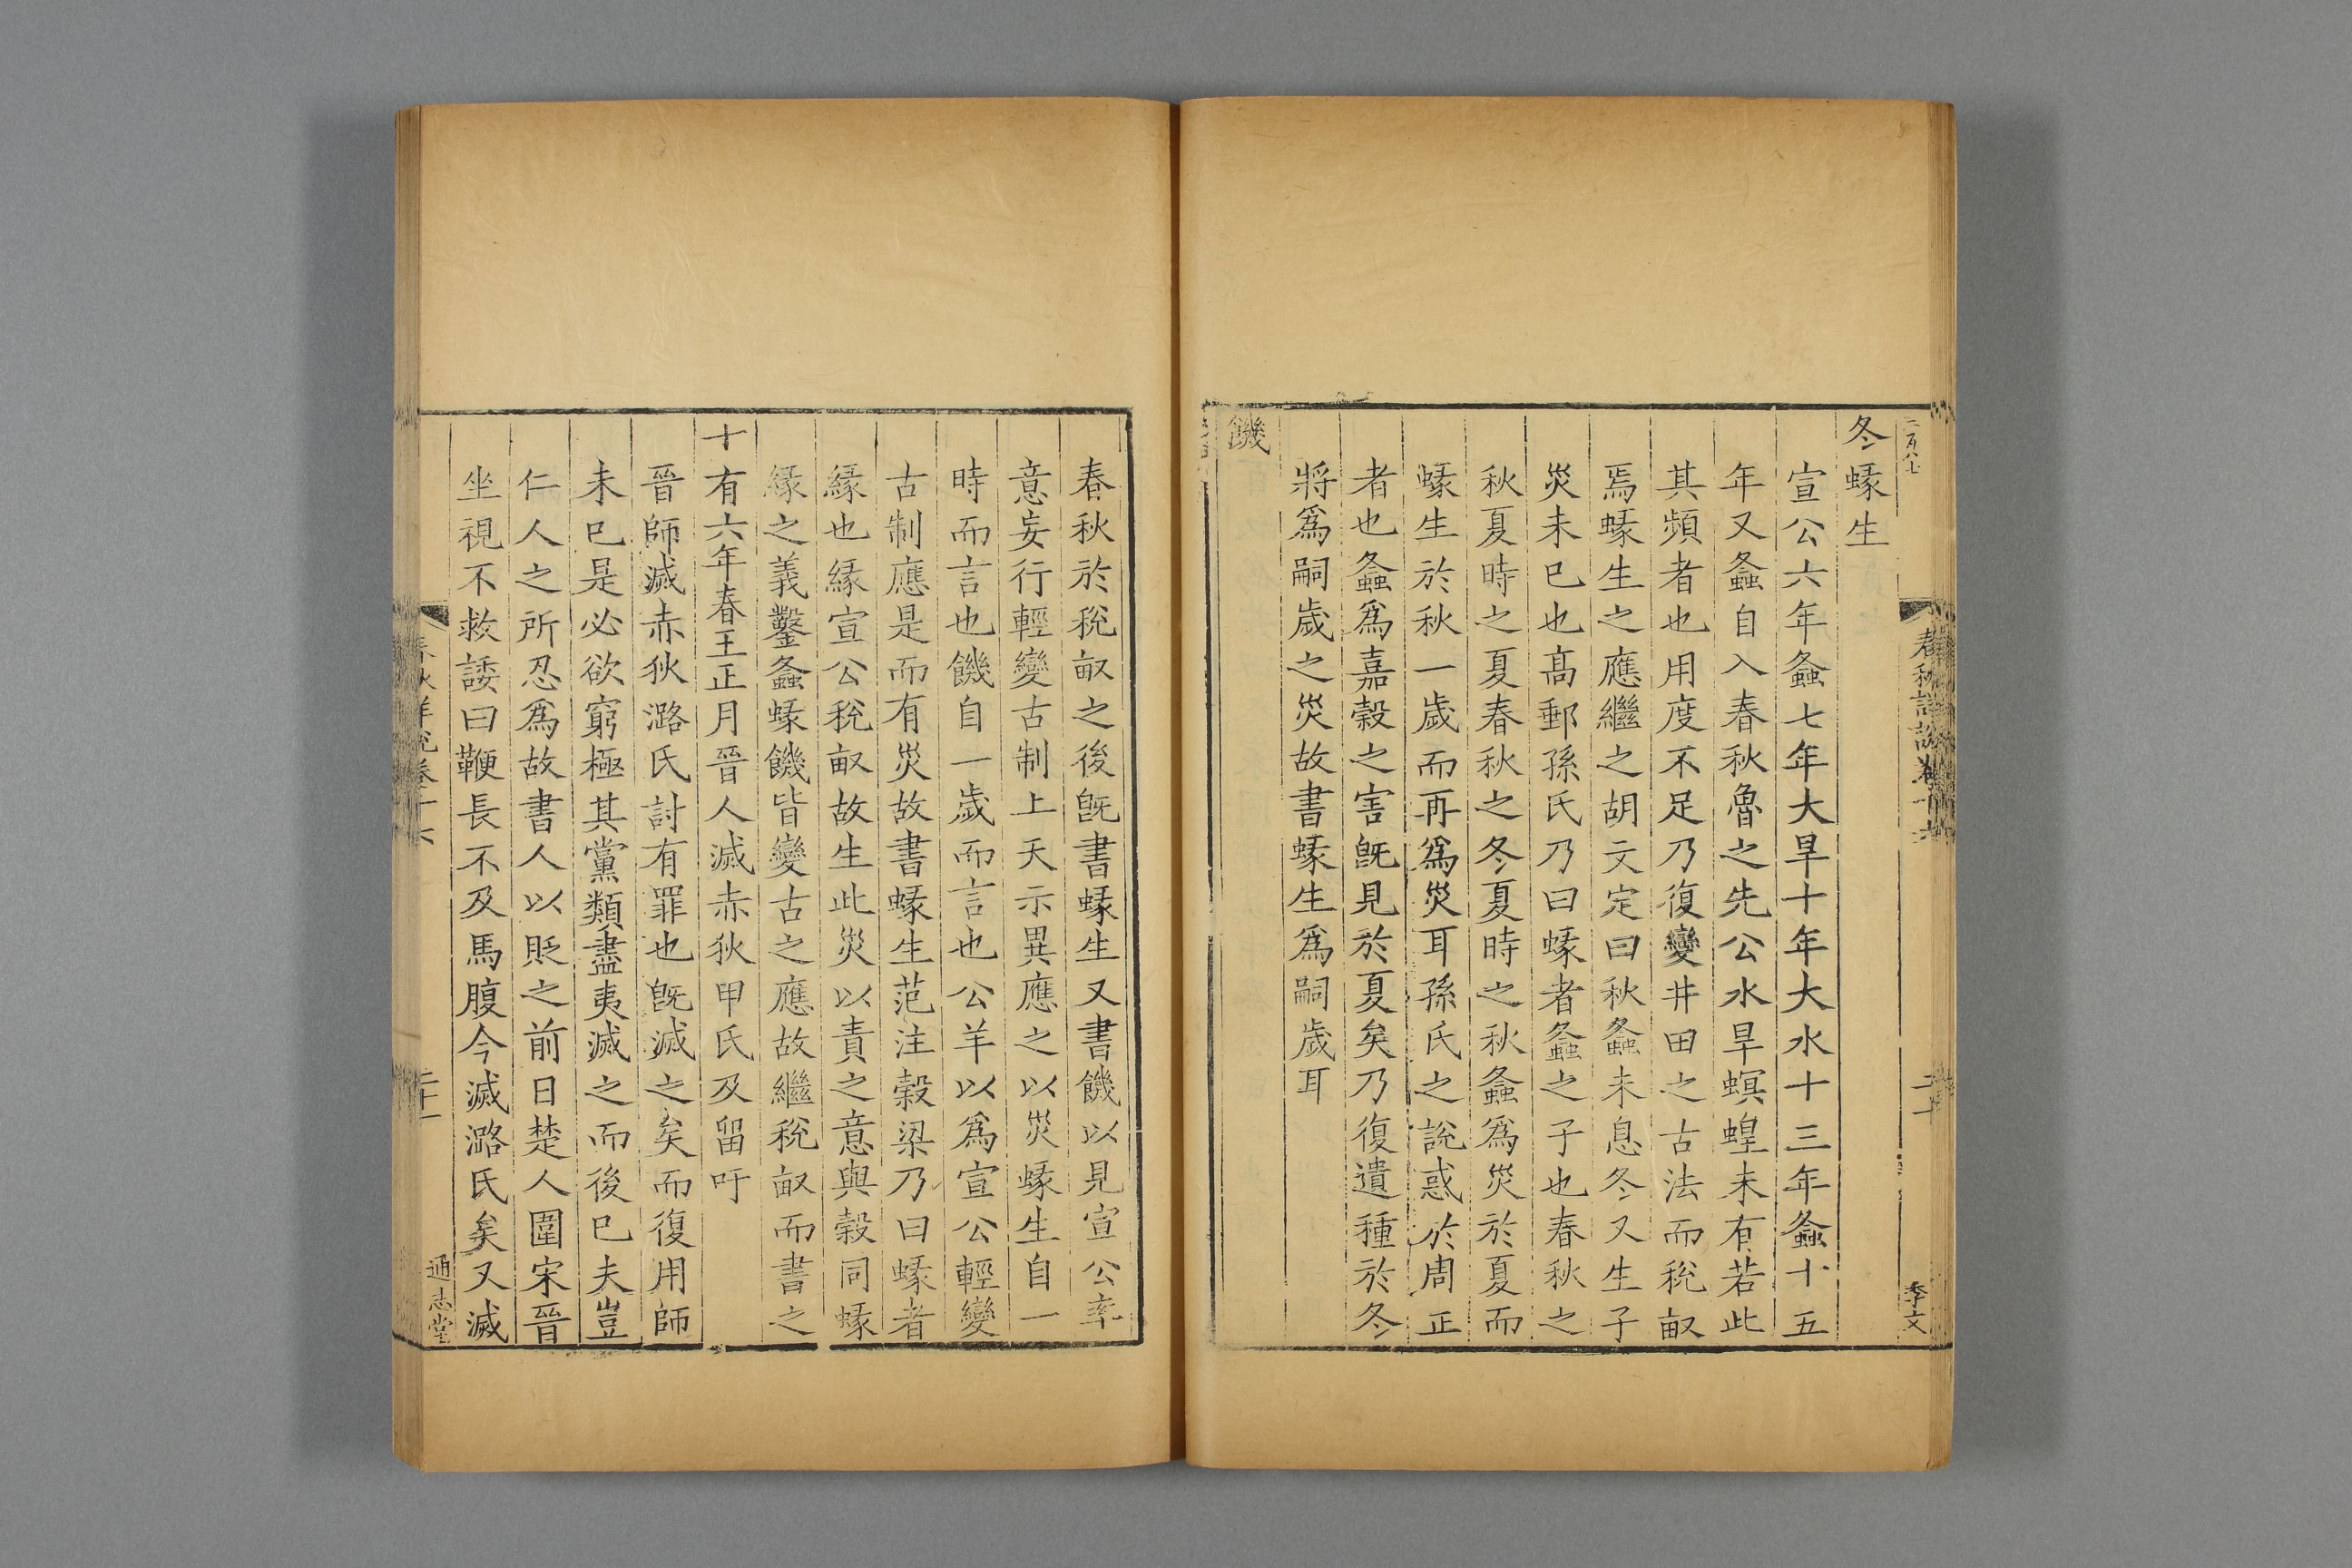 二百八七
春秋詳說卷十六
二十
季文
冬蝝生
宣公六年螽七年大旱十年大水十三年螽十五
年又螽自入春秋魯之先公水旱螟蝗未有若此
其頻者也用度不足乃復變井田之古法而稅畝
焉蝝生之應繼之胡文定曰秋螽未息冬又生子
災未已也髙郵孫氏乃曰蝝者螽之子也春秋之
秋夏時之夏春秋之冬夏時之秋螽為災於夏而
蝝生於秋一歲而再為災耳孫氏之說惑於周正
者也螽為嘉穀之害旣見於夏矣乃復遺種於冬
將為嗣歲之災故書蝝生為嗣歲耳
饑
春秋於稅畝之後旣書蝝生又書饑以見宣公率
意妄行輕變古制上天示異應之以災蝝生自一
時而言也饑自一歲而言也公羊以為宣公輕變
古制應是而有災故書蝝生范注穀梁乃曰蝝者
緣也緣宣公稅畝故生此災以責之意與穀同蝝
緣之義鑿螽蝝饑皆變古之應故繼稅畝而書之
十有六年春王正月晉人滅赤狄甲氏及留吁
晉師滅赤狄潞氏討有罪也旣滅之矣而復用師
未已是必欲窮極其黨類盡夷滅之而後已夫豈
仁人之所忍為故書人以貶之前日楚人圍宋晉
坐視不救諉曰鞭長不及馬腹今滅潞氏矣又滅
春秋詳說卷十六
二十一
通志堂